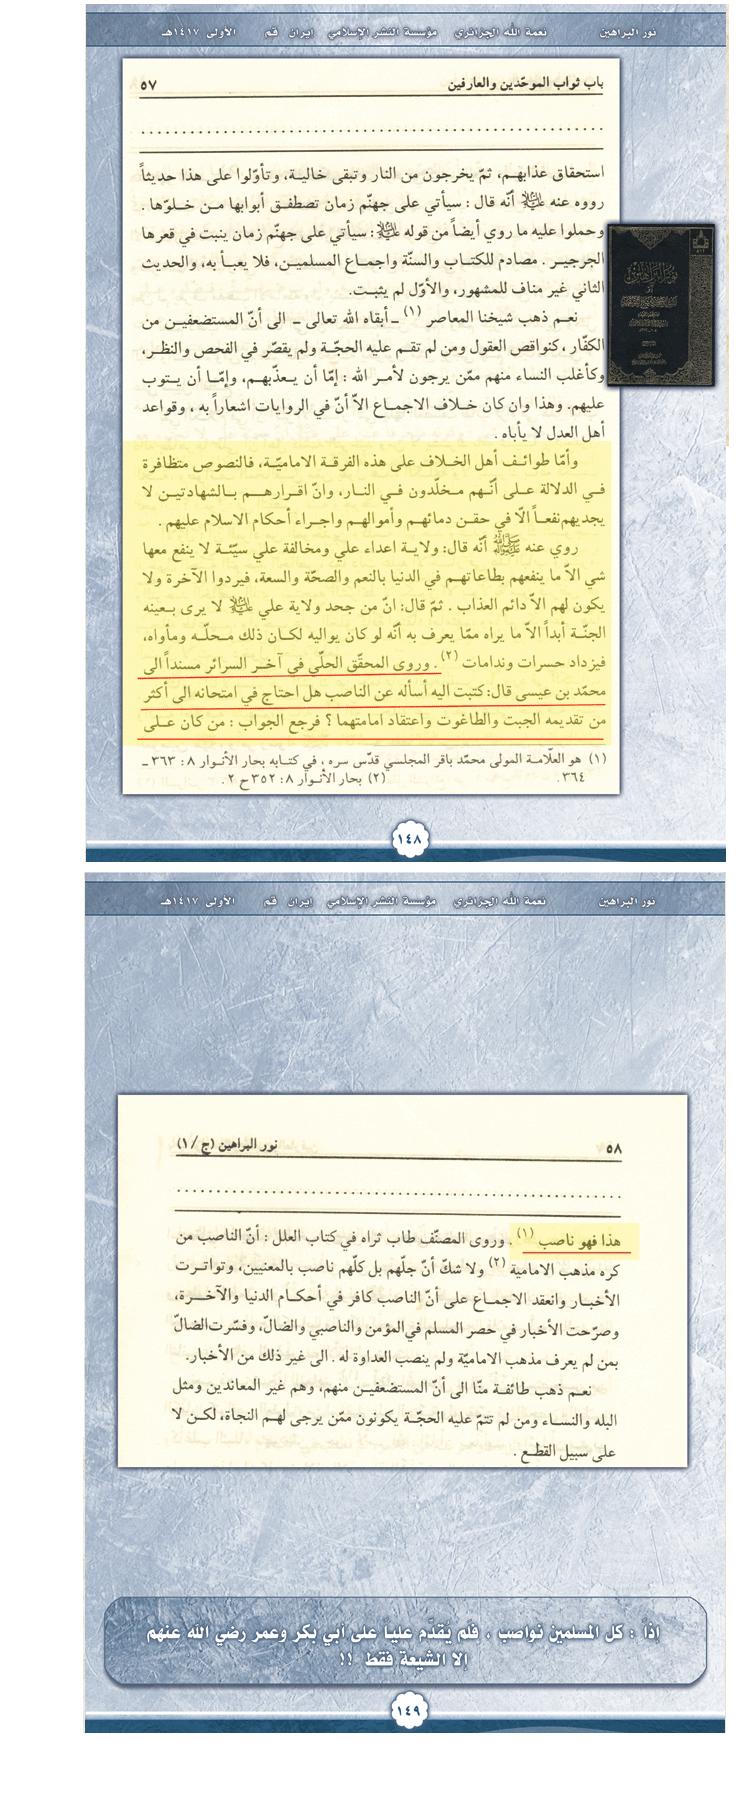 نور البراهين نعمة الله الجزائري مؤسسة النشر الإسلامي إيران قم الأولى ١٤١٧هـ
باب ثواب الموحّدين والعارفين ٥٧
استحقاق عذابهم، ثمّ يخرجون من النار وتبقى خالية، وتأوّلوا على هذا حديثاً
رووه عنه عليه السلام أنّه قال : سيأتي على جهنّم زمان تصطفق أبوابها من خلوّها .
وحملوا عليه ما روي أيضاً من قوله عليه السلام : سيأتي على جهنّم زمان ينبت في قعرها
الجرجير . مصادم للكتاب والسنّة واجماع المسلمين، فلا يعبأ به، والحديث
الثاني غير مناف للمشهور، والأوّل لم يثبت.
نعم ذهب شيخنا المعاصر (١) ـ أبقاه الله تعالى ـ الى أنّ المستضعفين من
الكفّار ، كنواقص العقول ومن لم تقم عليه الحجّة ولم يقصّر في الفحص والنظر،
وكأغلب النساء منهم ممّن يرجون لأمر الله : إمّا أن يعذّبهم، وإمّا أن يتوب
عليهم. وهذا وان كان خلاف الاجماع الاّ أنّ في الروايات اشعاراً به ، وقواعد
أهل العدل لا يأباه .
وأمّا طوائف أهل الخلاف على هذه الفرقة الاماميّة، فالنصوص متظافرة
في الدلالة على أنّهم مخلّدون في النار، وانّ اقرارهم بالشهادتين لا
يجديهم نفعاً الاّ في حقن دمائهم وأموالهم واجراء أحكام الاسلام عليهم .
روي عنه صلى الله عليه وآله أنّه قال: ولاية اعداء علي ومخالفة علي سيّئة لا ينفع معها
شي الاّ ما ينفعهم بطاعاتهم في الدنيا بالنعم والصحّة والسعة، فيردوا الآخرة ولا
يكون لهم الاّ دائم العذاب . ثمّ قال: انّ من جحد ولاية علي عليه السلام لا يرى بعينه
الجنّة أبداً الاّ ما يراه ممّا يعرف به أنّه لو كان يواليه لكان ذلك محلّه ومأواه،
فيزداد حسرات وندامات (٢) . وروى المحقّق الحلّي في آخر السرائر مسنداً الى
محمّد بن عيسى قال: كتبت اليه أسأله عن الناصب هل احتاج في امتحانه الى أكثر
من تقديمه الجبت والطاغوت واعتقاد امامتهما ؟ فرجع الجواب : من كان على
(١) هو العلّامة المولى محمّد باقر المجلسي قدّس سره ، في كتابه بحار الأنوار ٨ : ٣٦٣ ـ
٣٦٤ . (٢) بحار الأنوار ٨ : ٣٥٢ ح ٢ .
١٤٨
نور البراهين نعمة الله الجزائري مؤسسة النشر الإسلامي إيران قم الأولى ١٤١٧هـ
٥٨ نور البراهين (ج / ١)
هذا فهو ناصب (١) . وروى المصنّف طاب ثراه في كتاب العلل : أنّ الناصب من
كره مذهب الامامية (٢) ولا شكّ أنّ جلّهم بل كلّهم ناصب بالمعنيين، وتواترت
الأخبار وانعقد الاجماع على أنّ الناصب كافر في أحكام الدنيا والآخرة،
وصرّحت الأخبار في حصر المسلم في المؤمن والناصبي والضالّ، وفسّرت الضالّ
بمن لم يعرف مذهب الاماميّة ولم ينصب العداوة له . الى غير ذلك من الأخبار.
نعم ذهب طائفة منّا الى أنّ المستضعفين منهم، وهم غير المعاندين ومثل
البله والنساء ومن لم تتمّ عليه الحجّة يكونون ممّن يرجى لهم النجاة، لكن لا
على سبيل القطع .
إذاً : كل المسلمين نواصب ، فلم يُقدّم علياً على أبي بكر وعمر رضي الله عنهم
إلا الشيعة فقط !!
١٤٩